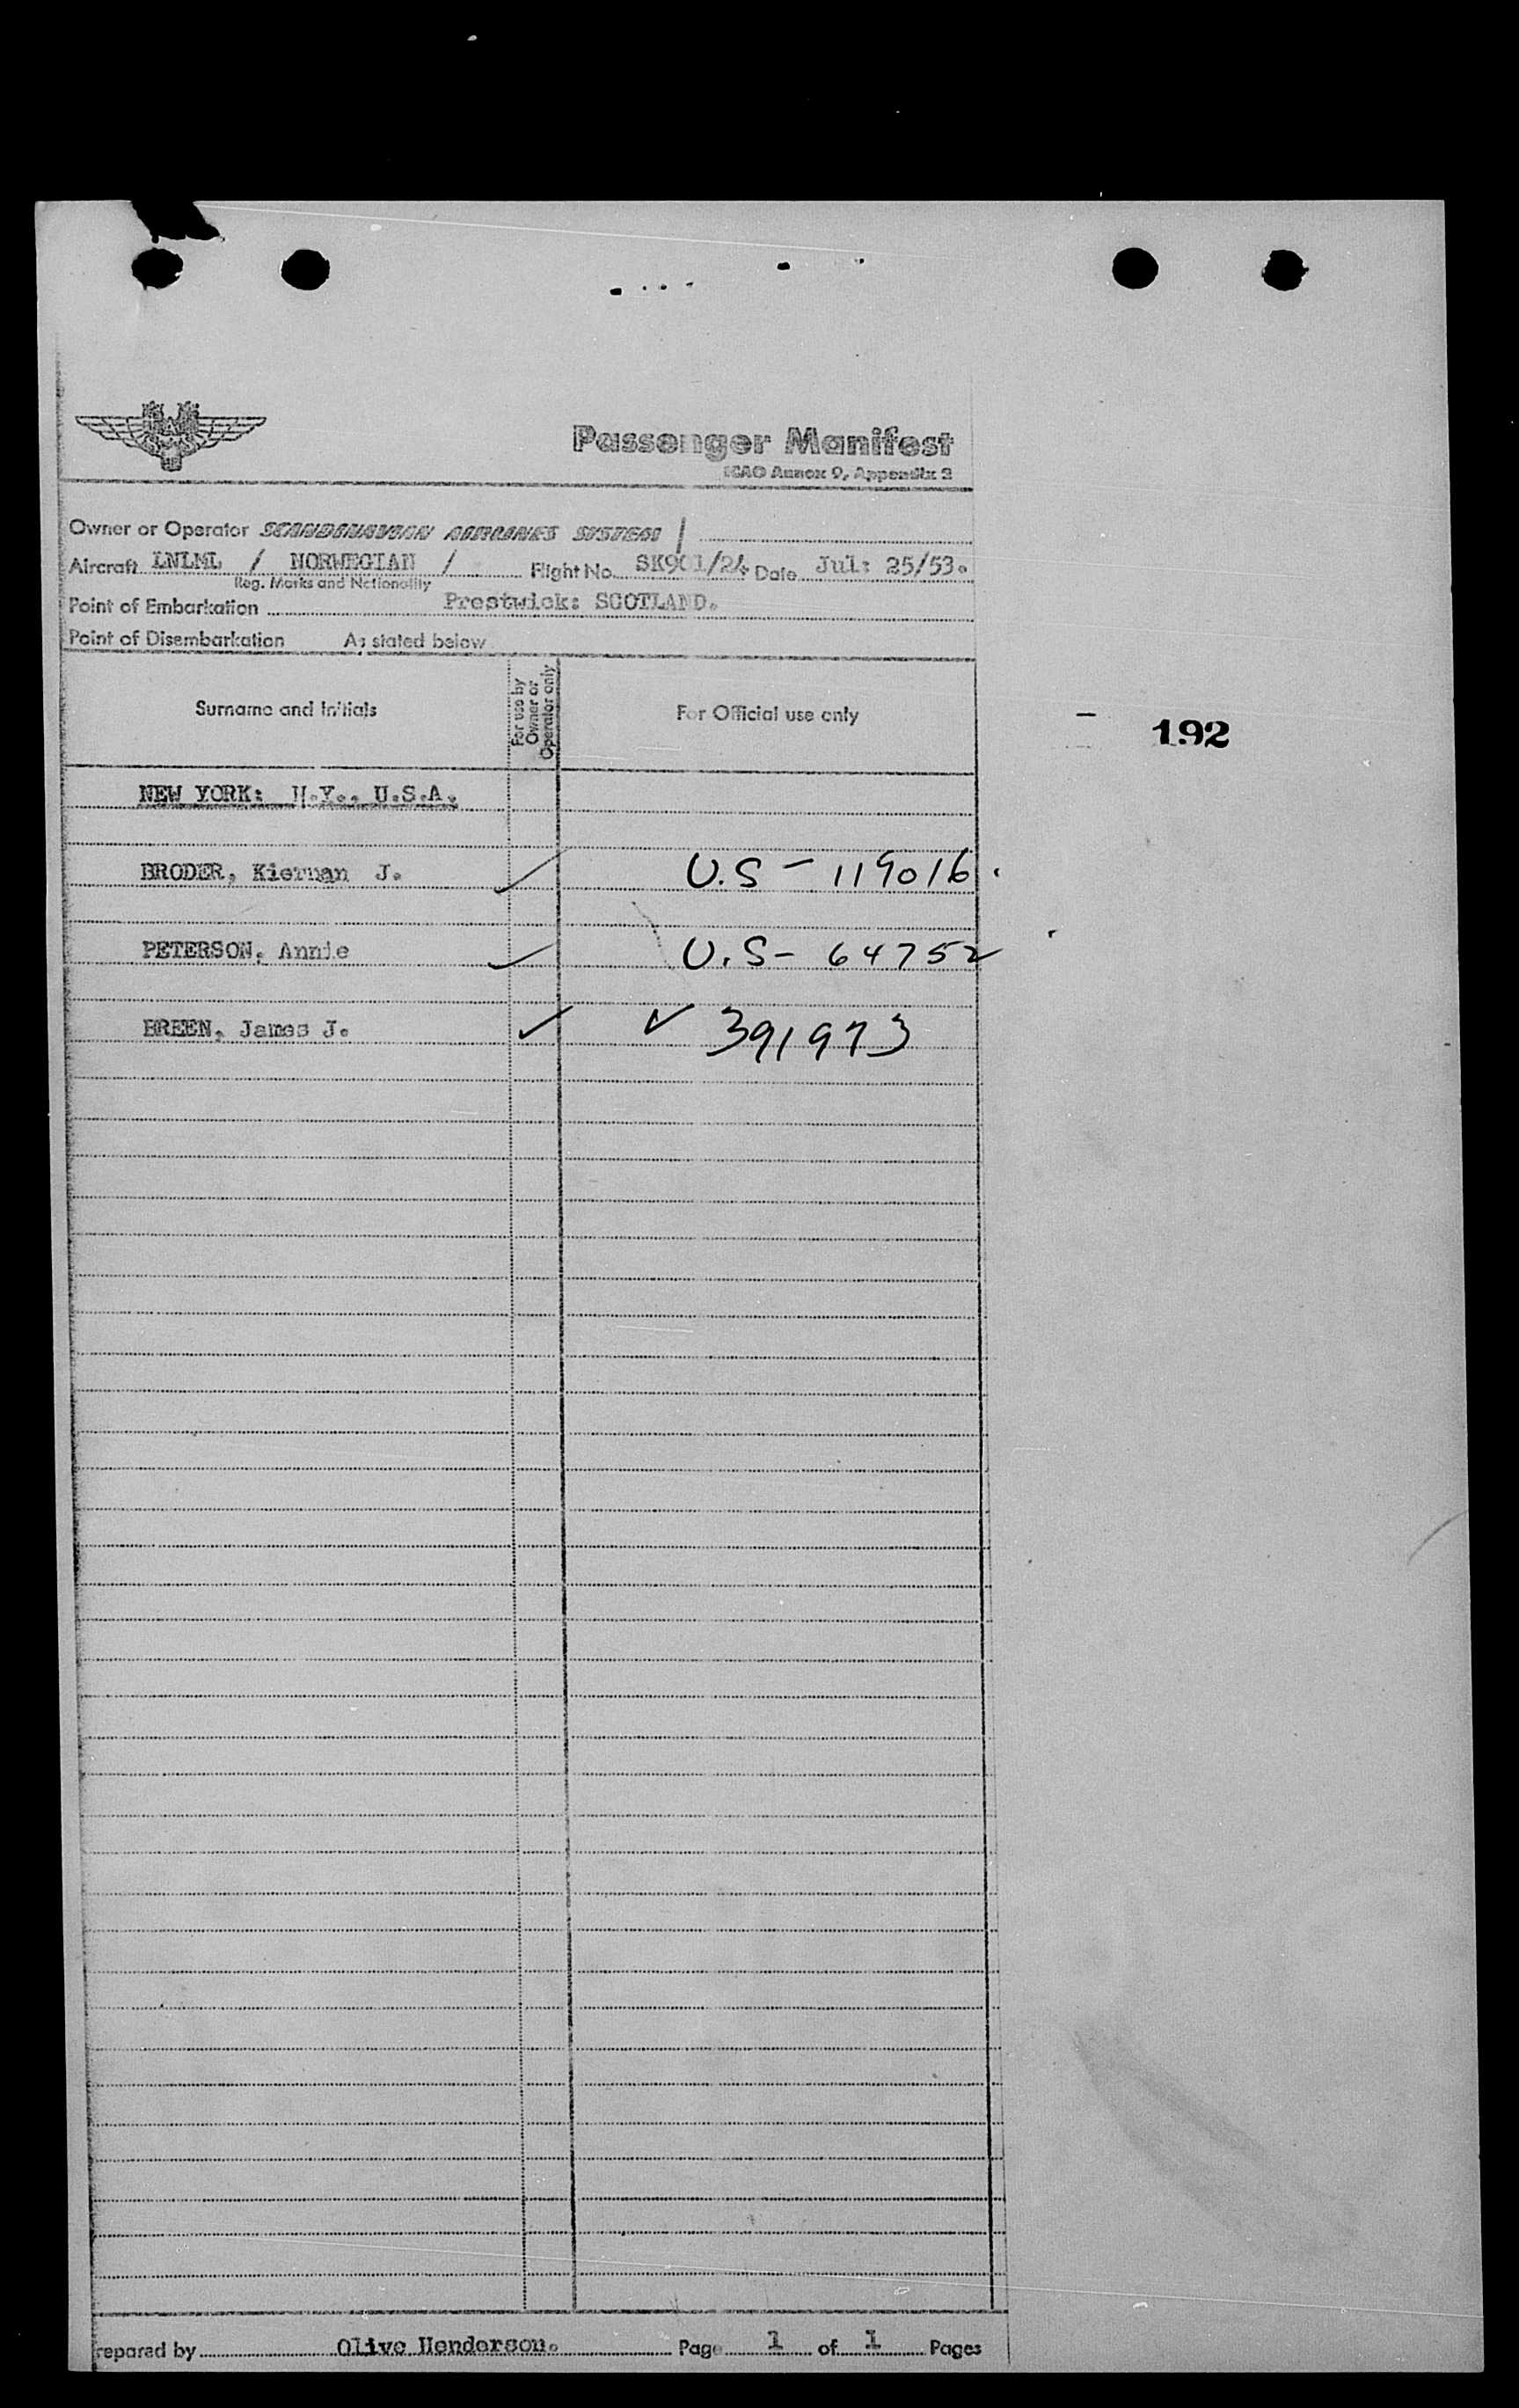 Passenger Manifest
ICAO Annex 9, Appendix 2
Owner or Operator SCANDINAVIAN AIRLINES SYSTEM /
Aircraft LNLML / NORWEGIAN / Flight No. SK901/24 Date Jul: 25/53.
Reg. Marks and Nationality
Point of Embarkation Prestwick: SCOTLAND.
Point of Disembarkation As stated below
Surname and Initials
For use by
Owner or
Operator only
For Official use only
192
NEW YORK: N.Y., U.S.A.
BRODER, Kiernan J. ✓ U.S - 119016.
PETERSON, Annie ✓ U.S- 64752
BREEN, James J. ✓ ✓ 391973
repared by Olive Henderson. Page 1 of 1 Pages